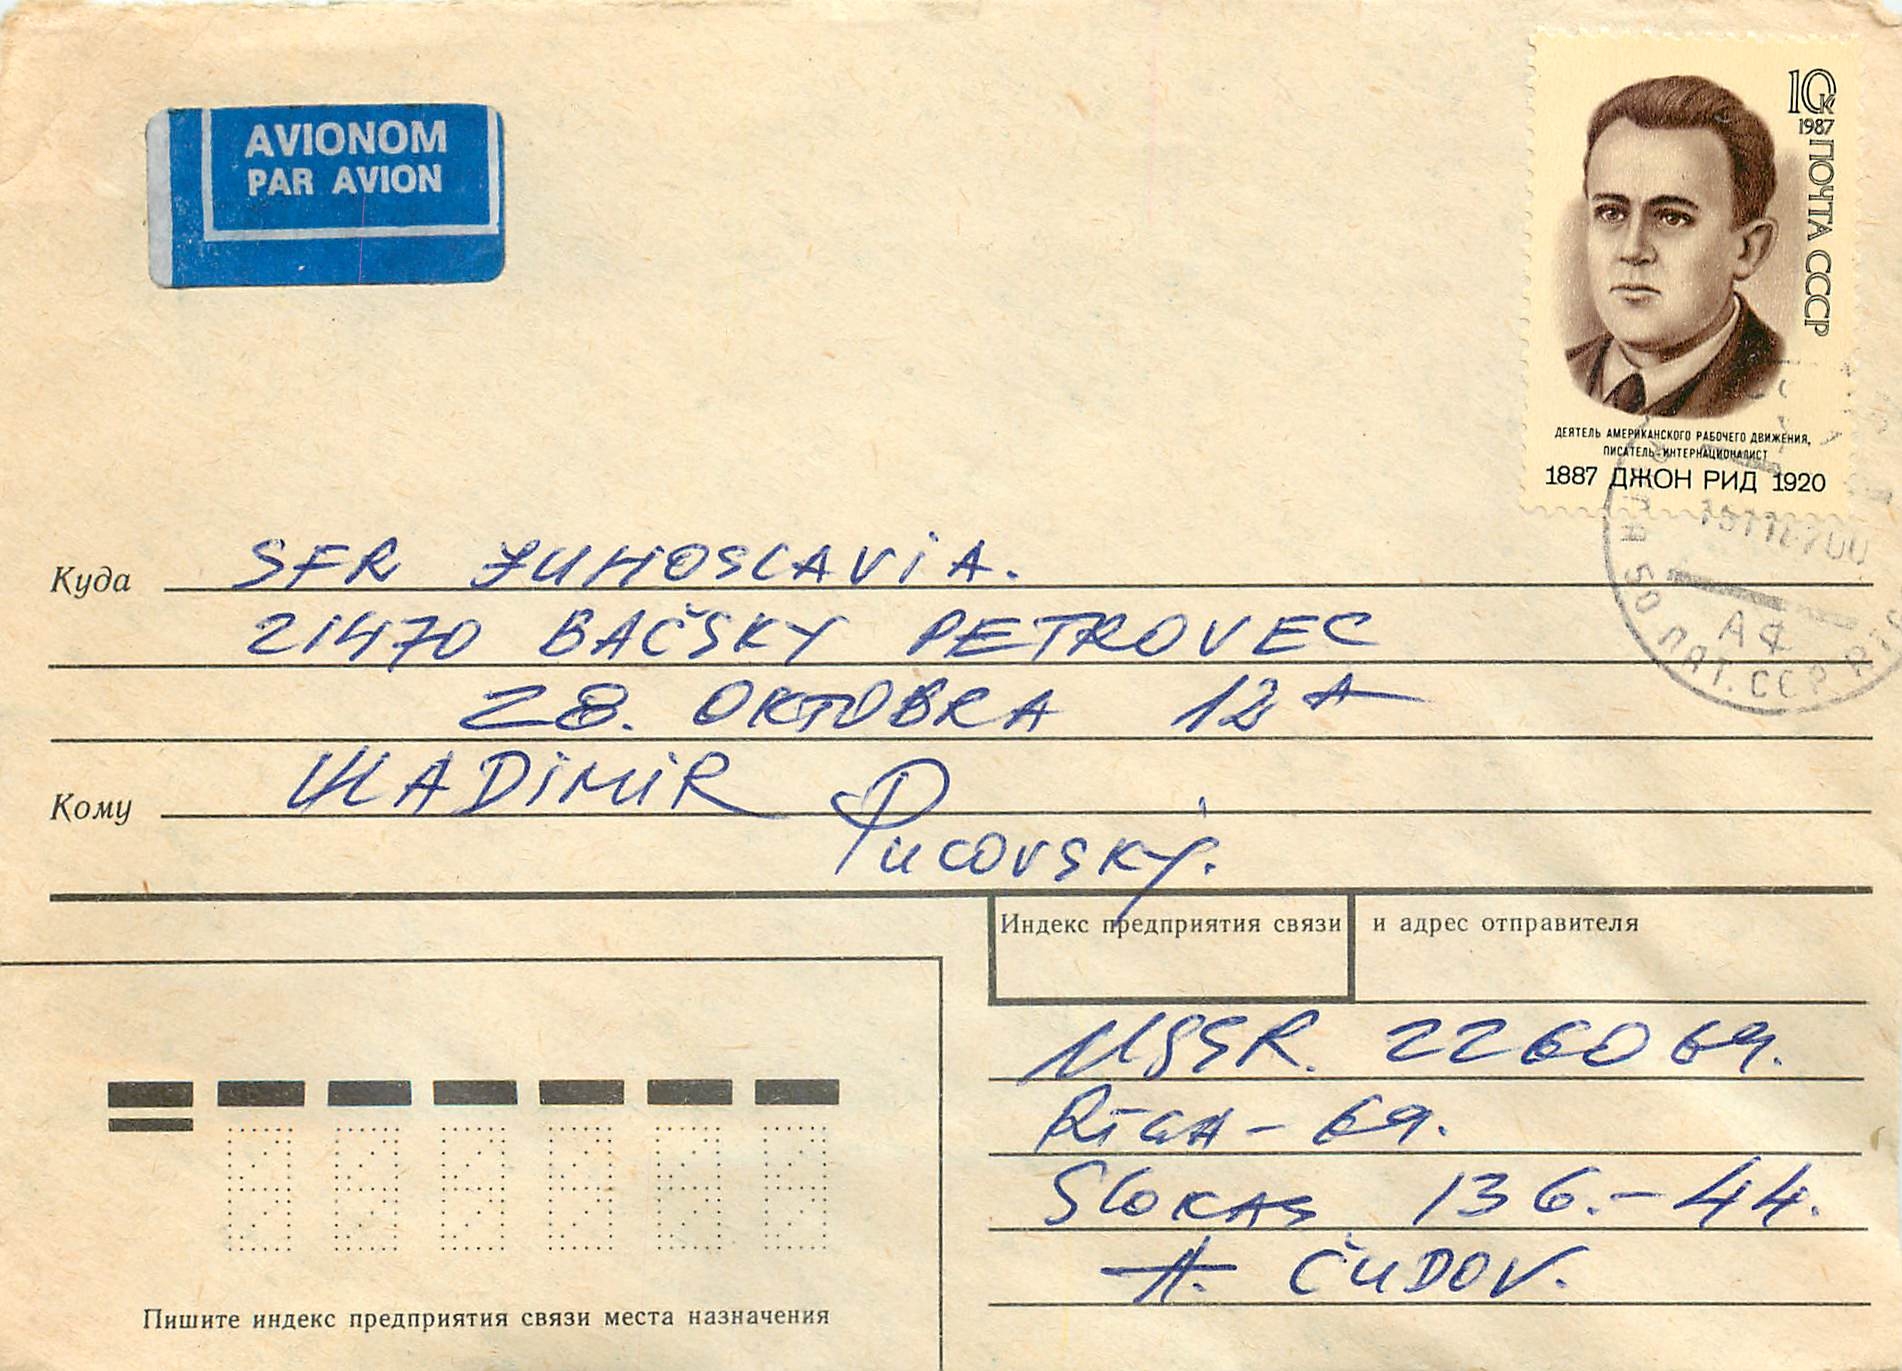 AVIONOM
PAR AVION
10 к
1987
ПОЧТА СССР
ДЕЯТЕЛЬ АМЕРИКАНСКОГО РАБОЧЕГО ДВИЖЕНИЯ,
ПИСАТЕЛЬ-ИНТЕРНАЦИОНАЛИСТ
1887 ДЖОН РИД 1920
Куда SFR JUHOSLAVIA.
21470 BAČSKY PETROVEC
28. OKTOBRA 12 A
Кому VLADIMIR
Pucovský.
Индекс предприятия связи и адрес отправителя
USSR. 226069.
RIGA - 69.
SLOKAS 136.-44.
A. ČUDOV.
50 ЛАТ. ССР
Пишите индекс предприятия связи места назначения